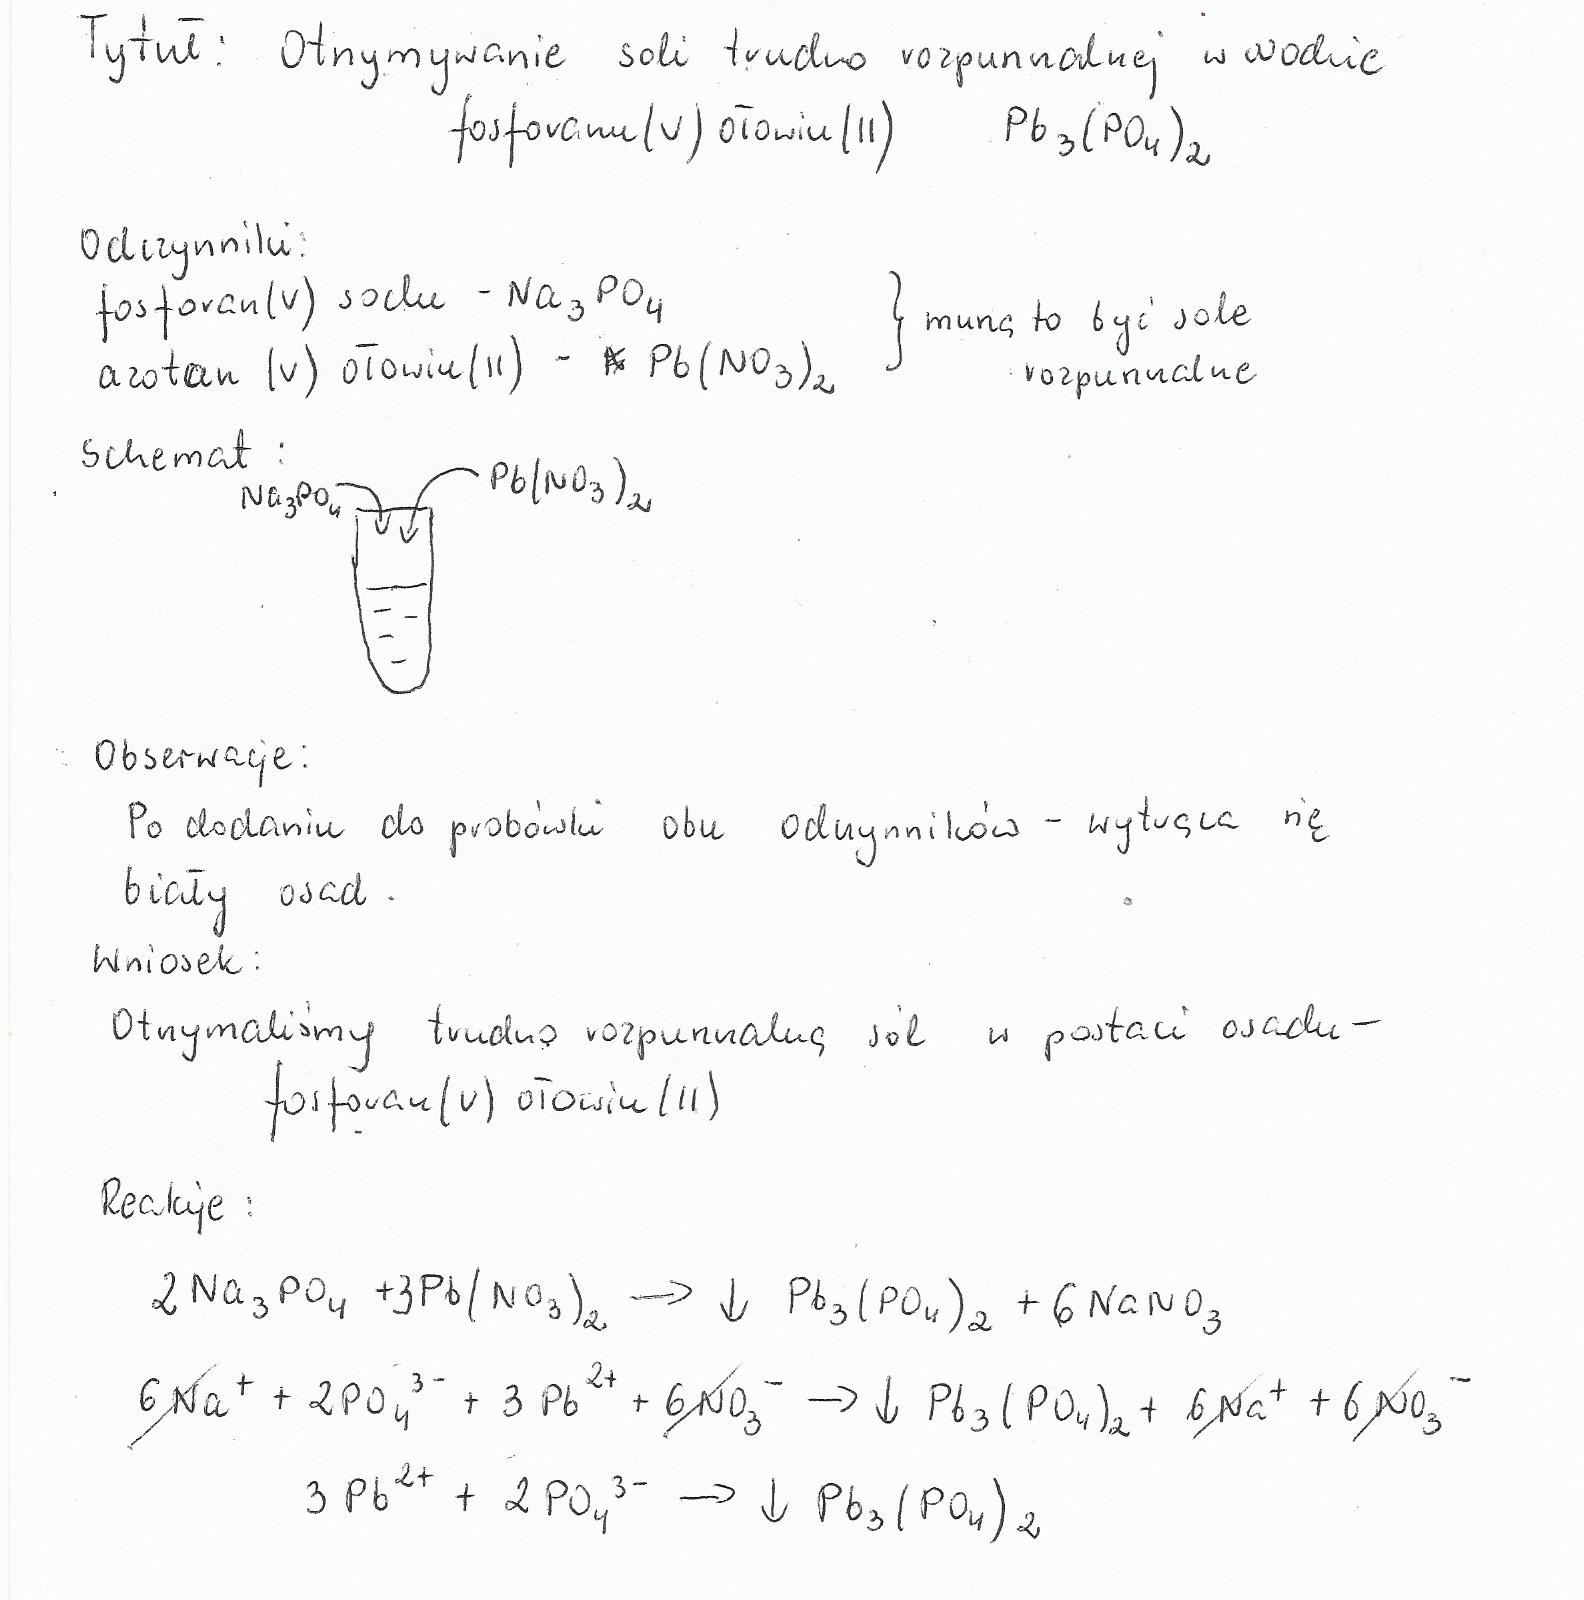 Tytuł: Otrzymywanie soli trudno rozpuszczalnej w wodzie
fosforanu(V) ołowiu(II) Pb₃(PO₄)₂
Odczynniki:
fosforan(V) sodu - Na₃PO₄
azotan (V) ołowiu(II) - Pb(NO₃)₂
} muszą to być sole
rozpuszczalne
Schemat:
Na₃PO₄ Pb(NO₃)₂
Obserwacje:
Po dodaniu do probówki obu odczynników - wytrąca się
biały osad.
Wniosek:
Otrzymaliśmy trudno rozpuszczalną sól w postaci osadu -
fosforan(V) ołowiu(II)
Reakcje:
2Na₃PO₄ + 3Pb(NO₃)₂ → ↓ Pb₃(PO₄)₂ + 6NaNO₃
6Na⁺ + 2PO₄³⁻ + 3Pb²⁺ + 6NO₃⁻ → ↓ Pb₃(PO₄)₂ + 6Na⁺ + 6NO₃⁻
3Pb²⁺ + 2PO₄³⁻ → ↓ Pb₃(PO₄)₂